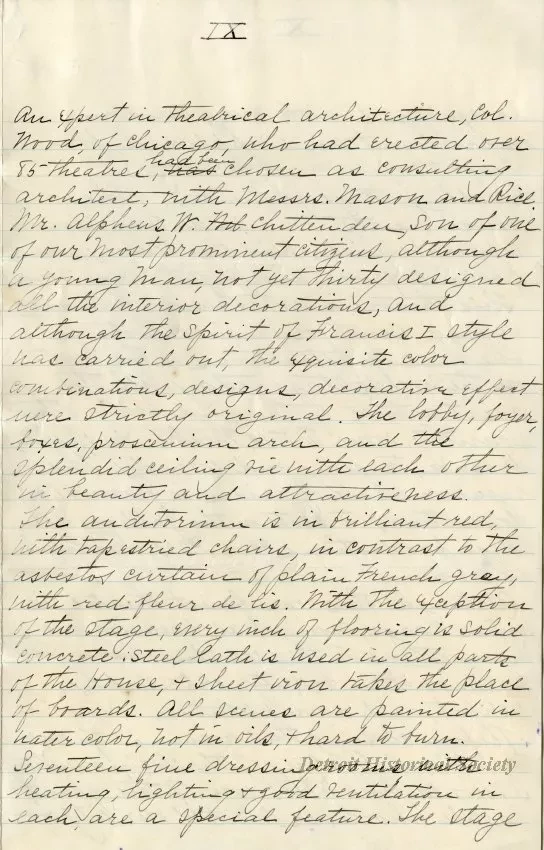 IX
An expert in theatrical architecture, Col.
Wood, of Chicago, who had erected over
85 theatres, was had been chosen as consulting
architect, with Messrs. Mason and Rice.
Mr. Alpheus W. Chittenden, son of one
of our most prominent citizens, although
a young man, not yet thirty designed
all the interior decorations, and
although the spirit of Francis I style
was carried out, the exquisite color
combinations, designs, decorative effect
were strictly original. The lobby, foyer,
boxes, proscenium arch, and the
splendid ceiling vie with each other
in beauty and attractiveness.
The auditorium is in brilliant red,
with tapestried chairs, in contrast to the
asbestos curtain of plain French gray,
with red fleur de lis. With the exception
of the stage, every inch of flooring is solid
concrete: steel lath is used in all parts
of the House, + sheet iron takes the place
of boards. All scenes are painted in
water color, not in oils, + hard to burn.
Seventeen fine dressing rooms with
Detroit Historical Society
heating, lighting + good ventilation in
each, are a special feature. The stage